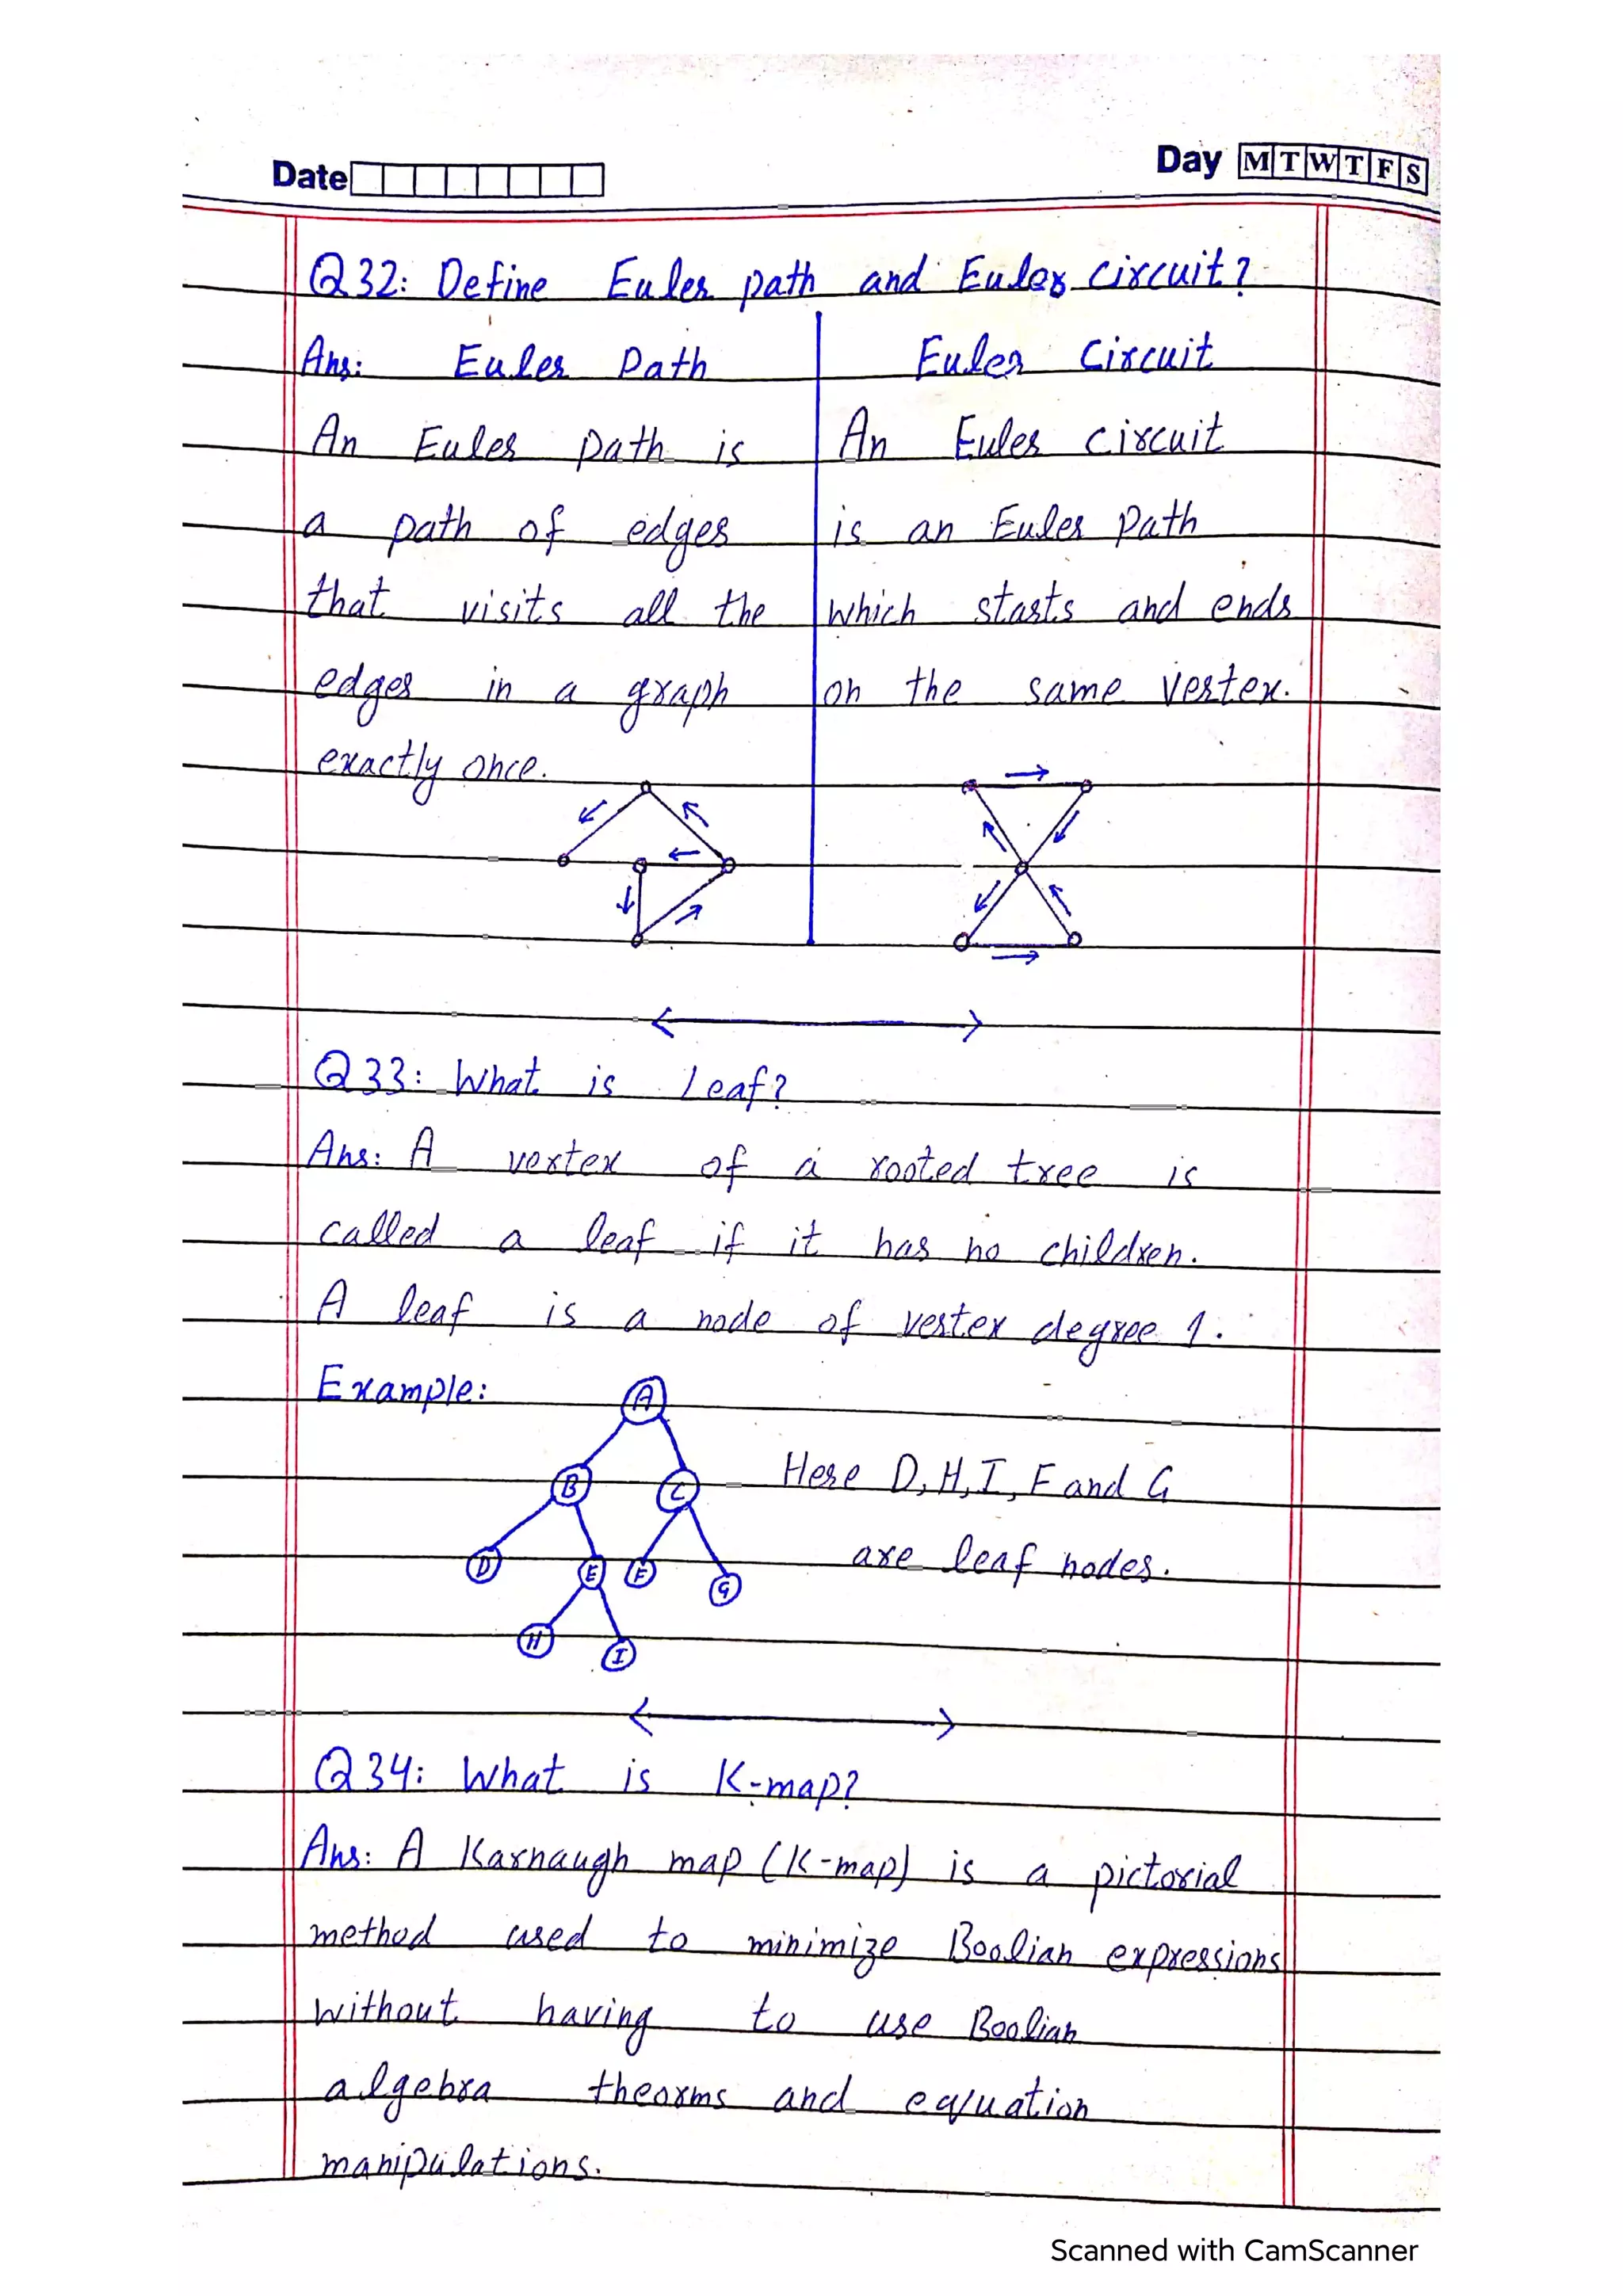 Date
Day M T W T F S
Q32: Define Euler path and Euler circuit?
Ans: Euler Path
An Euler path is
a path of edges
that visits all the
edges in a graph
exactly once.
Euler Circuit
An Euler circuit
is an Euler Path
which starts and ends
on the same vertex.
Q33: What is Leaf?
Ans: A vertex of a rooted tree is
called a leaf if it has no children.
A leaf is a node of vertex degree 1.
Example:
A
B C
D E F G
H I
Here D, H, I, F and G
are leaf nodes.
Q34: What is K-map?
Ans: A Karnaugh map (K-map) is a pictorial
method used to minimize Boolian expressions
without having to use Boolian
algebra theorms and equation
manipulations.
Scanned with CamScanner